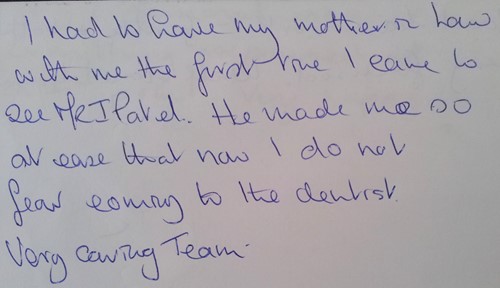 I had to have my mother in law
with me the first time I came to
see Mr I Patel. He made me so
at ease that now I do not
fear coming to the dentist.
Very caring Team.